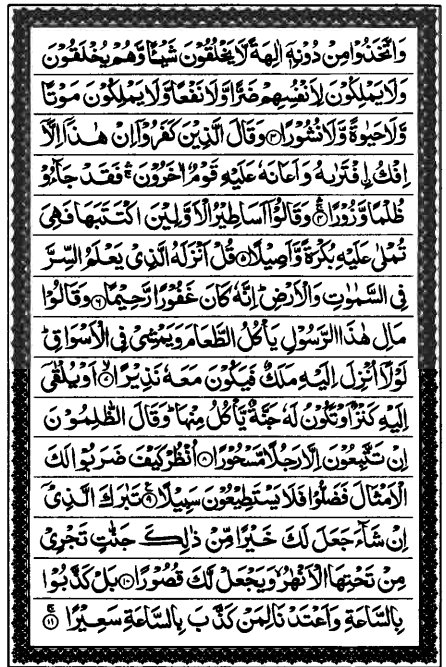 وَاتَّخَذُوْا مِنْ دُوْنِهٖۤ اٰلِهَةً لَّا يَخْلُقُوْنَ شَيْـًٔا وَّهُمْ يُخْلَقُوْنَ
وَلَا يَمْلِكُوْنَ لِاَنْفُسِهِمْ ضَرًّا وَّلَا نَفْعًا وَّلَا يَمْلِكُوْنَ مَوْتًا
وَّلَا حَيٰوةً وَّلَا نُشُوْرًا ۳ وَقَالَ الَّذِيْنَ كَفَرُوْۤا اِنْ هٰذَاۤ اِلَّاۤ
اِفْكُ اۨفْتَرٰىهُ وَاَعَانَهٗ عَلَيْهِ قَوْمٌ اٰخَرُوْنَ ۛۚ فَقَدْ جَآءُوْ
ظُلْمًا وَّزُوْرًا ۛۚ ۴ وَقَالُوْۤا اَسَاطِيْرُ الْاَوَّلِيْنَ اكْتَتَبَهَا فَهِيَ
تُمْلٰى عَلَيْهِ بُكْرَةً وَّاَصِيْلًا ۵ قُلْ اَنْزَلَهُ الَّذِيْ يَعْلَمُ السِّرَّ
فِي السَّمٰوٰتِ وَالْاَرْضِ ؕ اِنَّهٗ كَانَ غَفُوْرًا رَّحِيْمًا ۶ وَقَالُوْا
مَالِ هٰذَا الرَّسُوْلِ يَاْكُلُ الطَّعَامَ وَيَمْشِيْ فِي الْاَسْوَاقِ ؕ
لَوْلَاۤ اُنْزِلَ اِلَيْهِ مَلَكٌ فَيَكُوْنَ مَعَهٗ نَذِيْرًا ۙ ۷ اَوْ يُلْقٰۤى
اِلَيْهِ كَنْزٌ اَوْ تَكُوْنُ لَهٗ جَنَّةٌ يَّاْكُلُ مِنْهَا ؕ وَقَالَ الظّٰلِمُوْنَ
اِنْ تَتَّبِعُوْنَ اِلَّا رَجُلًا مَّسْحُوْرًا ۸ اُنْظُرْ كَيْفَ ضَرَبُوْا لَكَ
الْاَمْثَالَ فَضَلُّوْا فَلَا يَسْتَطِيْعُوْنَ سَبِيْلًا ۹ تَبٰرَكَ الَّذِيْۤ
اِنْ شَآءَ جَعَلَ لَكَ خَيْرًا مِّنْ ذٰلِكَ جَنّٰتٍ تَجْرِيْ
مِنْ تَحْتِهَا الْاَنْهٰرُ ۙ وَيَجْعَلْ لَّكَ قُصُوْرًا ۱۰ بَلْ كَذَّبُوْا
بِالسَّاعَةِ وَاَعْتَدْنَا لِمَنْ كَذَّبَ بِالسَّاعَةِ سَعِيْرًا ۚ ۱۱